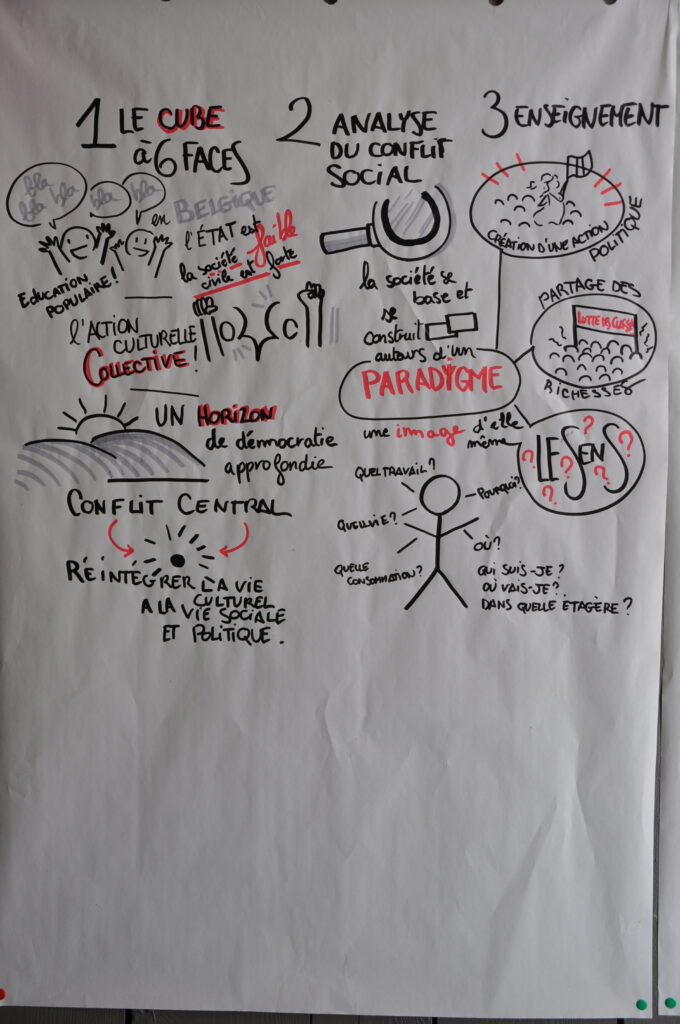 1 LE CUBE
à 6 FACES
bla
bla bla
bla
bla
en BELGIQUE
l'ÉTAT est faible
la société
civile est forte
EDUCATION
POPULAIRE!
l'ACTION
CULTURELLE
COLLECTIVE!
UN HORIZON
de démocratie
approfondie
CONFLIT CENTRAL
RÉINTÉGRER LA VIE
CULTUREL
A LA VIE SOCIALE
ET POLITIQUE.
2 ANALYSE
DU CONFLIT
SOCIAL
la société se
base et
se
construit
autours d'un
PARADIGME
une image d'elle
même
QUEL TRAVAIL?
POURQUOI?
QUELLE VIE?
OÙ?
QUELLE
CONSOMMATION?
QUI SUIS-JE?
OÙ VAIS-JE?
DANS QUELLE ÉTAGÈRE?
3 ENSEIGNEMENT
CRÉATION D'UNE ACTION
POLITIQUE
PARTAGE DES
LUTTE DES CLASSES
RICHESSES
LE SENS
? ? ? ? ? ?